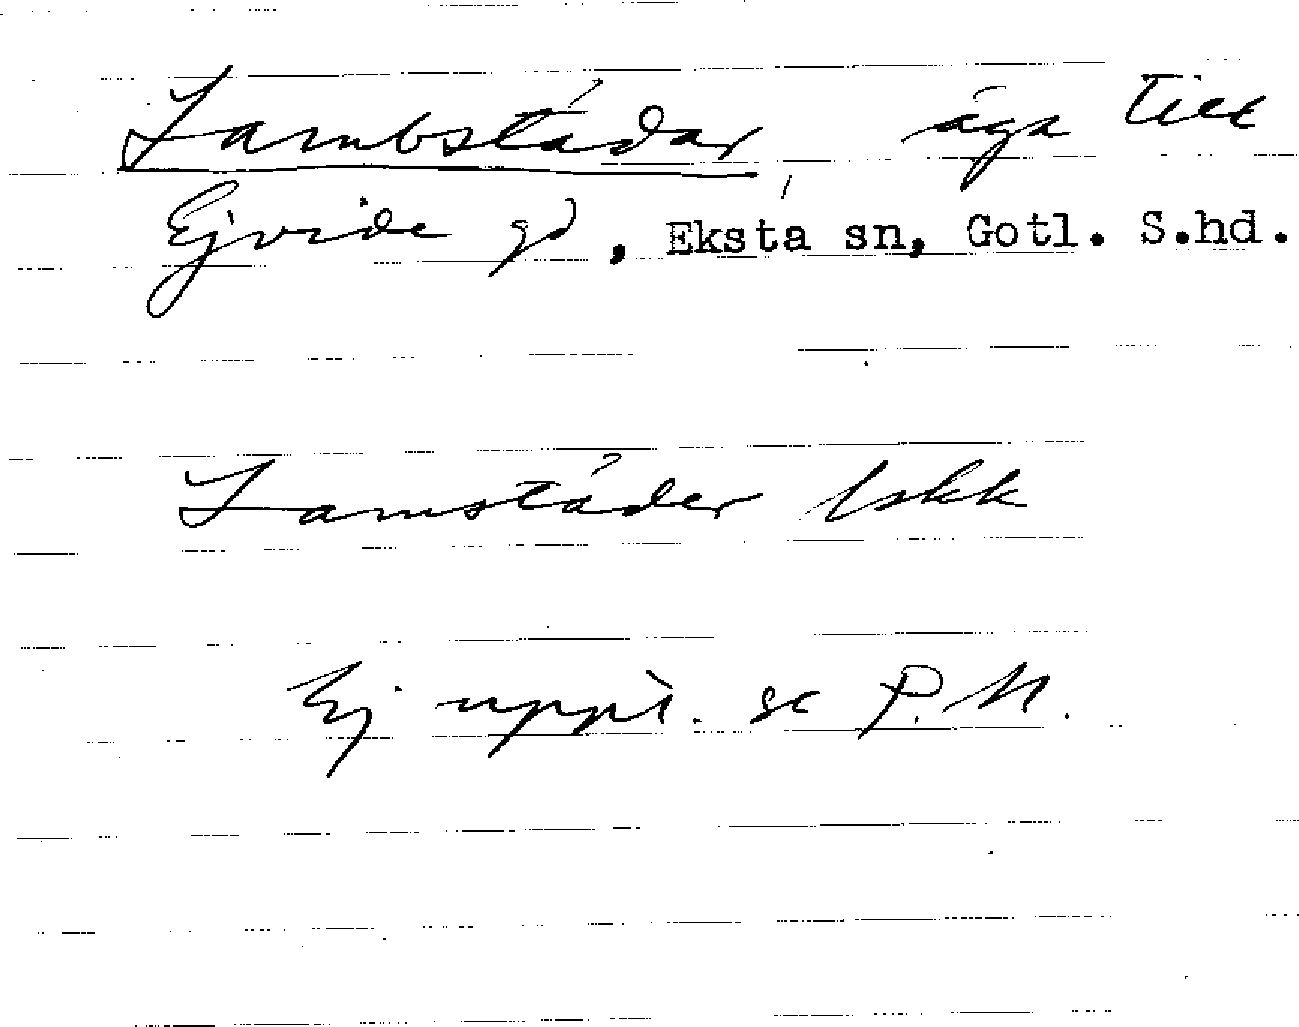 Lambstädar, äga till
Ejvide gd, Eksta sn, Gotl. S.hd.
Lamstäder lskk
Ej uppt. se P.M.